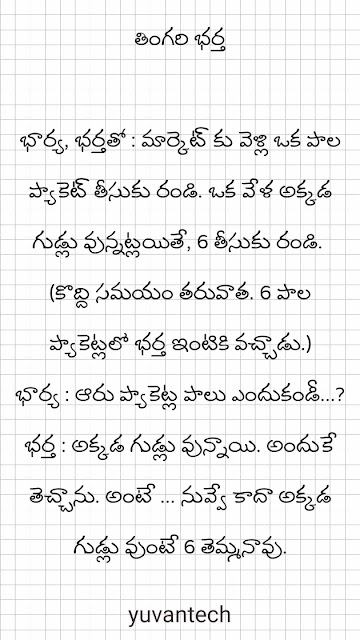 తింగరి భర్త
భార్య, భర్తతో : మార్కెట్ కు వెళ్లి ఒక పాల
ప్యాకెట్ తీసుకు రండి. ఒక వేళ అక్కడ
గుడ్లు వున్నట్లయితే, 6 తీసుకు రండి.
(కొద్ది సమయం తరువాత. 6 పాల
ప్యాకెట్లలో భర్త ఇంటికి వచ్చాడు.)
భార్య : ఆరు ప్యాకెట్ల పాలు ఎందుకండీ...?
భర్త : అక్కడ గుడ్లు వున్నాయి. అందుకే
తెచ్చాను. అంటే ... నువ్వే కాదా అక్కడ
గుడ్లు వుంటే 6 తెమ్మనావు.
yuvantech